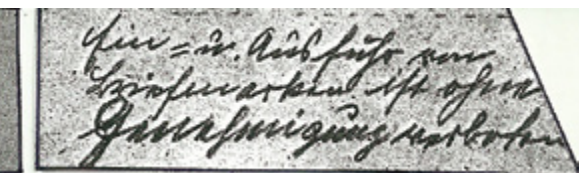 Ein = u. Ausfuhr von
Briefmarken ist ohne
Genehmigung verboten